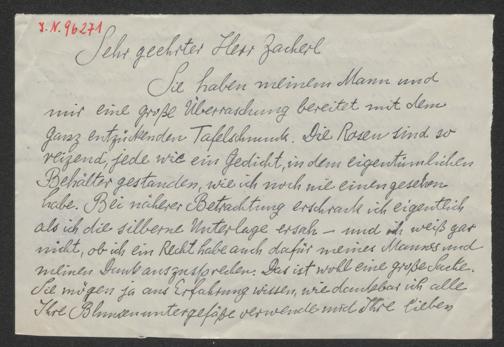 J. N. 96271
Sehr geehrter Herr Zacherl
Sie haben meinem Mann und
mir eine große Überraschung bereitet mit dem
ganz entzückenden Tafelschmuck. Die Rosen sind so
reizend, jede wie ein Gedicht, in dem eigentümlichen
Behälter gestanden, wie ich noch nie einen gesehen
habe. Bei näherer Betrachtung erschrack ich eigentlich
als ich die silberne Unterlage ersah – und ich weiß gar
nicht, ob ich ein Recht habe auch dafür meines Mannes und
meinen Dank auszusprechen. Das ist wohl eine große Sache.
Sie mögen ja aus Erfahrung wissen, wie dankbar ich alle
Ihre Blumenuntergefäße verwende und Ihre lieben